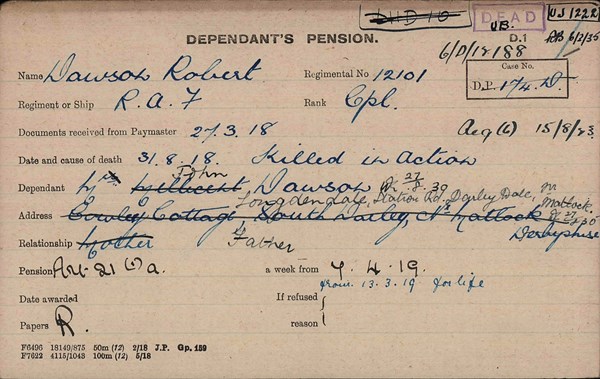 DHD 10
DEAD
U.B.
US 1222
DEPENDANT'S PENSION.
D.1
6/D/12188
6/2/35
Name Dawson Robert
Regimental No 12101
Case No.
D.P. 174. D.
Regiment or Ship R. A. F
Rank Cpl.
Documents received from Paymaster 27. 3. 18
15/8/23
Date and cause of death 31. 8. 18. Killed in action
John
Dependant Mr Millicent Dawson
27.8.30
Longdendale, Station Rd, Darley Dale, Nr Matlock
Address Cowley Cottage, South Darley, Nr Matlock
Derbyshire
Relationship Mother Father
Pension a week from 7. 4. 19.
from 13. 3. 19 for life
Date awarded
If refused
Papers R.
reason
F6496 18149/875 50m (12) 2/18 J.P. Gp. 159
F7622 4115/1043 100m (12) 5/18